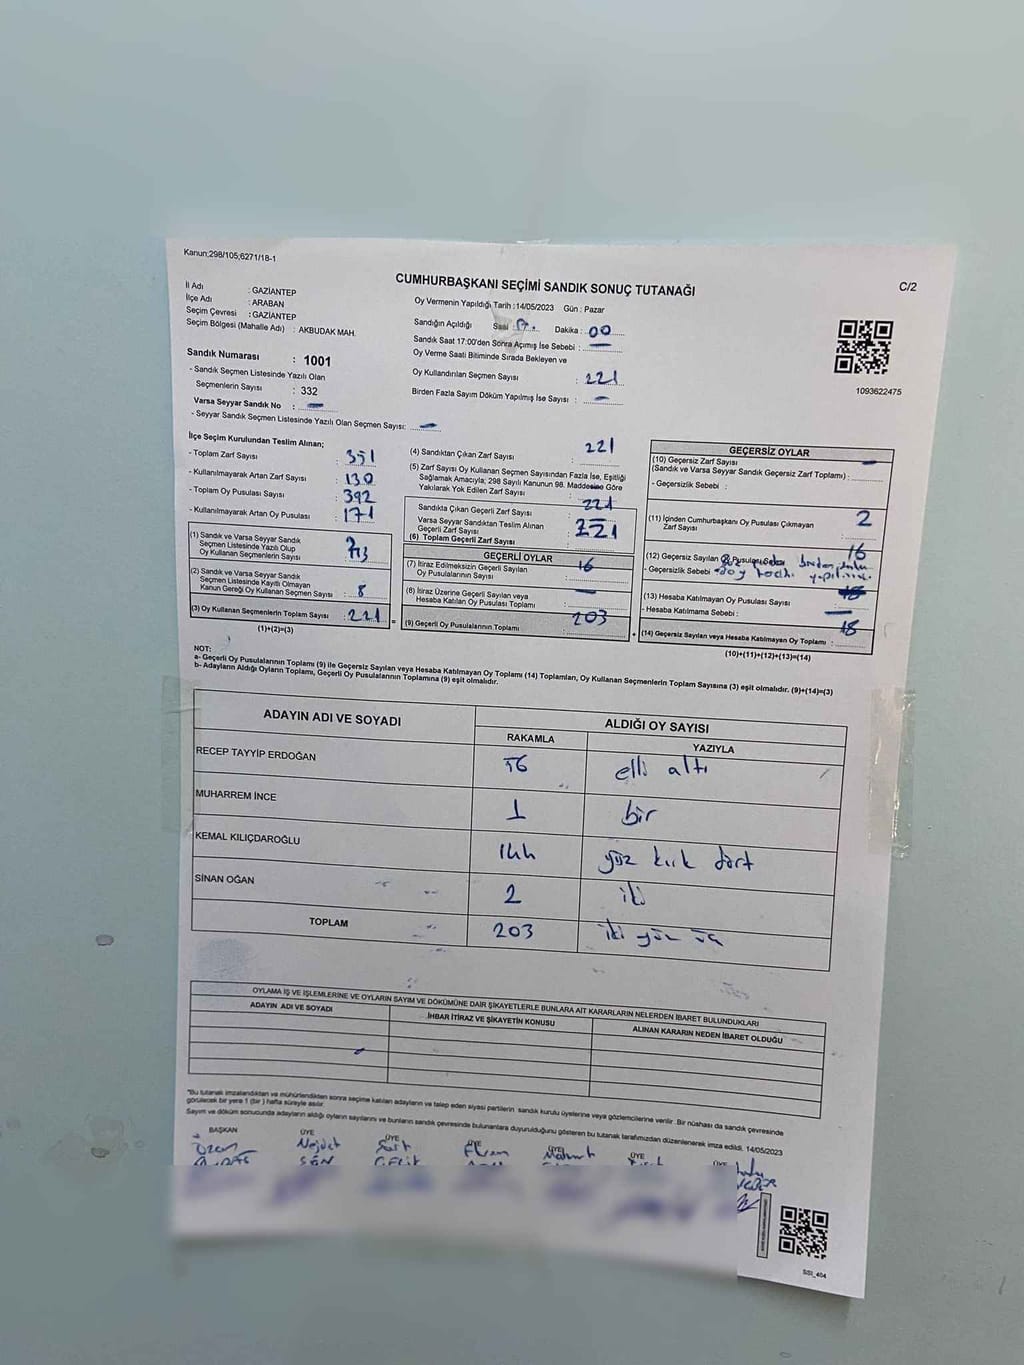 Kanun;298/105;6271/18-1
CUMHURBAŞKANI SEÇİMİ SANDIK SONUÇ TUTANAĞI
C/2
İl Adı : GAZİANTEP
İlçe Adı : ARABAN
Seçim Çevresi : GAZİANTEP
Seçim Bölgesi (Mahalle Adı) : AKBUDAK MAH.
Oy Vermenin Yapıldığı Tarih :14/05/2023 Gün : Pazar
Sandığın Açıldığı Saat : Dakika : 00
Sandık Saat 17:00'den Sonra Açımış İse Sebebi : —
Oy Verme Saati Bitiminde Sırada Bekleyen ve
Oy Kullandırılan Seçmen Sayısı : 221
Birden Fazla Sayım Döküm Yapılmış İse Sayısı : —
1093622475
Sandık Numarası : 1001
- Sandık Seçmen Listesinde Yazılı Olan
Seçmenlerin Sayısı : 332
Varsa Seyyar Sandık No : —
- Seyyar Sandık Seçmen Listesinde Yazılı Olan Seçmen Sayısı: —
İlçe Seçim Kurulundan Teslim Alınan;
- Toplam Zarf Sayısı : 351
- Kullanılmayarak Artan Zarf Sayısı : 130
- Toplam Oy Pusulası Sayısı : 392
- Kullanılmayarak Artan Oy Pusulası : 171
(1) Sandık ve Varsa Seyyar Sandık
Seçmen Listesinde Yazılı Olup
Oy Kullanan Seçmenlerin Sayısı :
(2) Sandık ve Varsa Seyyar Sandık
Seçmen Listesinde Kayıtlı Olmayan
Kanun Gereği Oy Kullanan Seçmen Sayısı : 8
(3) Oy Kullanan Seçmenlerin Toplam Sayısı : 221
(1)+(2)=(3)
(4) Sandıktan Çıkan Zarf Sayısı : 221
(5) Zarf Sayısı Oy Kullanan Seçmen Sayısından Fazla İse, Eşitliği
Sağlamak Amacıyla; 298 Sayılı Kanunun 98. Maddesine Göre
Yakılarak Yok Edilen Zarf Sayısı :
Sandıkta Çıkan Geçerli Zarf Sayısı 221
Varsa Seyyar Sandıktan Teslim Alınan
Geçerli Zarf Sayısı
(6) Toplam Geçerli Zarf Sayısı : 221
GEÇERLİ OYLAR
(7) İtiraz Edilmeksizin Geçerli Sayılan
Oy Pusulalarının Sayısı : 16
(8) İtiraz Üzerine Geçerli Sayılan veya
Hesaba Katılan Oy Pusulası Toplamı : —
(9) Geçerli Oy Pusulalarının Toplamı : 203
GEÇERSİZ OYLAR
(10) Geçersiz Zarf Sayısı
(Sandık ve Varsa Seyyar Sandık Geçersiz Zarf Toplamı) : —
- Geçersizlik Sebebi :
(11) İçinden Cumhurbaşkanı Oy Pusulası Çıkmayan
Zarf Sayısı : 2
(12) Geçersiz Sayılan Oy Pusulası Sayısı 16
- Geçersizlik Sebebi
(13) Hesaba Katılmayan Oy Pusulası Sayısı
- Hesaba Katılmama Sebebi : —
(14) Geçersiz Sayılan veya Hesaba Katılmayan Oy Toplamı : 18
(10)+(11)+(12)+(13)=(14)
NOT:
a- Geçerli Oy Pusulalarının Toplamı (9) ile Geçersiz Sayılan veya Hesaba Katılmayan Oy Toplamı (14) Toplamları, Oy Kullanan Seçmenlerin Toplam Sayısına (3) eşit olmalıdır. (9)+(14)=(3)
b- Adayların Aldığı Oyların Toplamı, Geçerli Oy Pusulalarının Toplamına (9) eşit olmalıdır.
ADAYIN ADI VE SOYADI
ALDIĞI OY SAYISI
RAKAMLA YAZIYLA
RECEP TAYYİP ERDOĞAN 56 elli altı
MUHARREM İNCE 1 bir
KEMAL KILIÇDAROĞLU 144 yüz kırk dört
SİNAN OĞAN 2 iki
TOPLAM 203 iki yüz üç
OYLAMA İŞ VE İŞLEMLERİNE VE OYLARIN SAYIM VE DÖKÜMÜNE DAİR ŞİKAYETLERLE BUNLARA AİT KARARLARIN NELERDEN İBARET BULUNDUKLARI
ADAYIN ADI VE SOYADI İHBAR İTİRAZ VE ŞİKAYETİN KONUSU ALINAN KARARIN NEDEN İBARET OLDUĞU
*Bu tutanak imzalandıktan ve mühürlendikten sonra seçime katılan adayların ve talep eden siyasi partilerin sandık kurulu üyelerine veya gözlemcilerine verilir. Bir nüshası da sandık çevresinde
görülecek bir yere 1 (bir) hafta süreyle asılır.
Sayım ve döküm sonucunda adayların aldığı oyların sayılarını ve bunların sandık çevresinde bulunanlara duyurulduğunu gösteren bu tutanak tarafımızdan düzenlenerek imza edildi. 14/05/2023
BAŞKAN ÜYE ÜYE ÜYE ÜYE ÜYE ÜYE
Nejdet
SSI_404